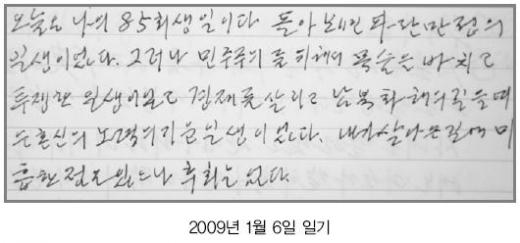 오늘은 나의 85회 생일이다. 돌아보면 파란만장의
일생이었다. 그러나 민주주의를 위해 목숨을 바치고
투쟁한 일생이었고 경제를 살리고 남북화해의 길을 여
는 혼신의 노력을 기울인 일생이었다. 내가 살아온 길에 미
흡한 점은 있으나 후회는 없다.
2009년 1월 6일 일기